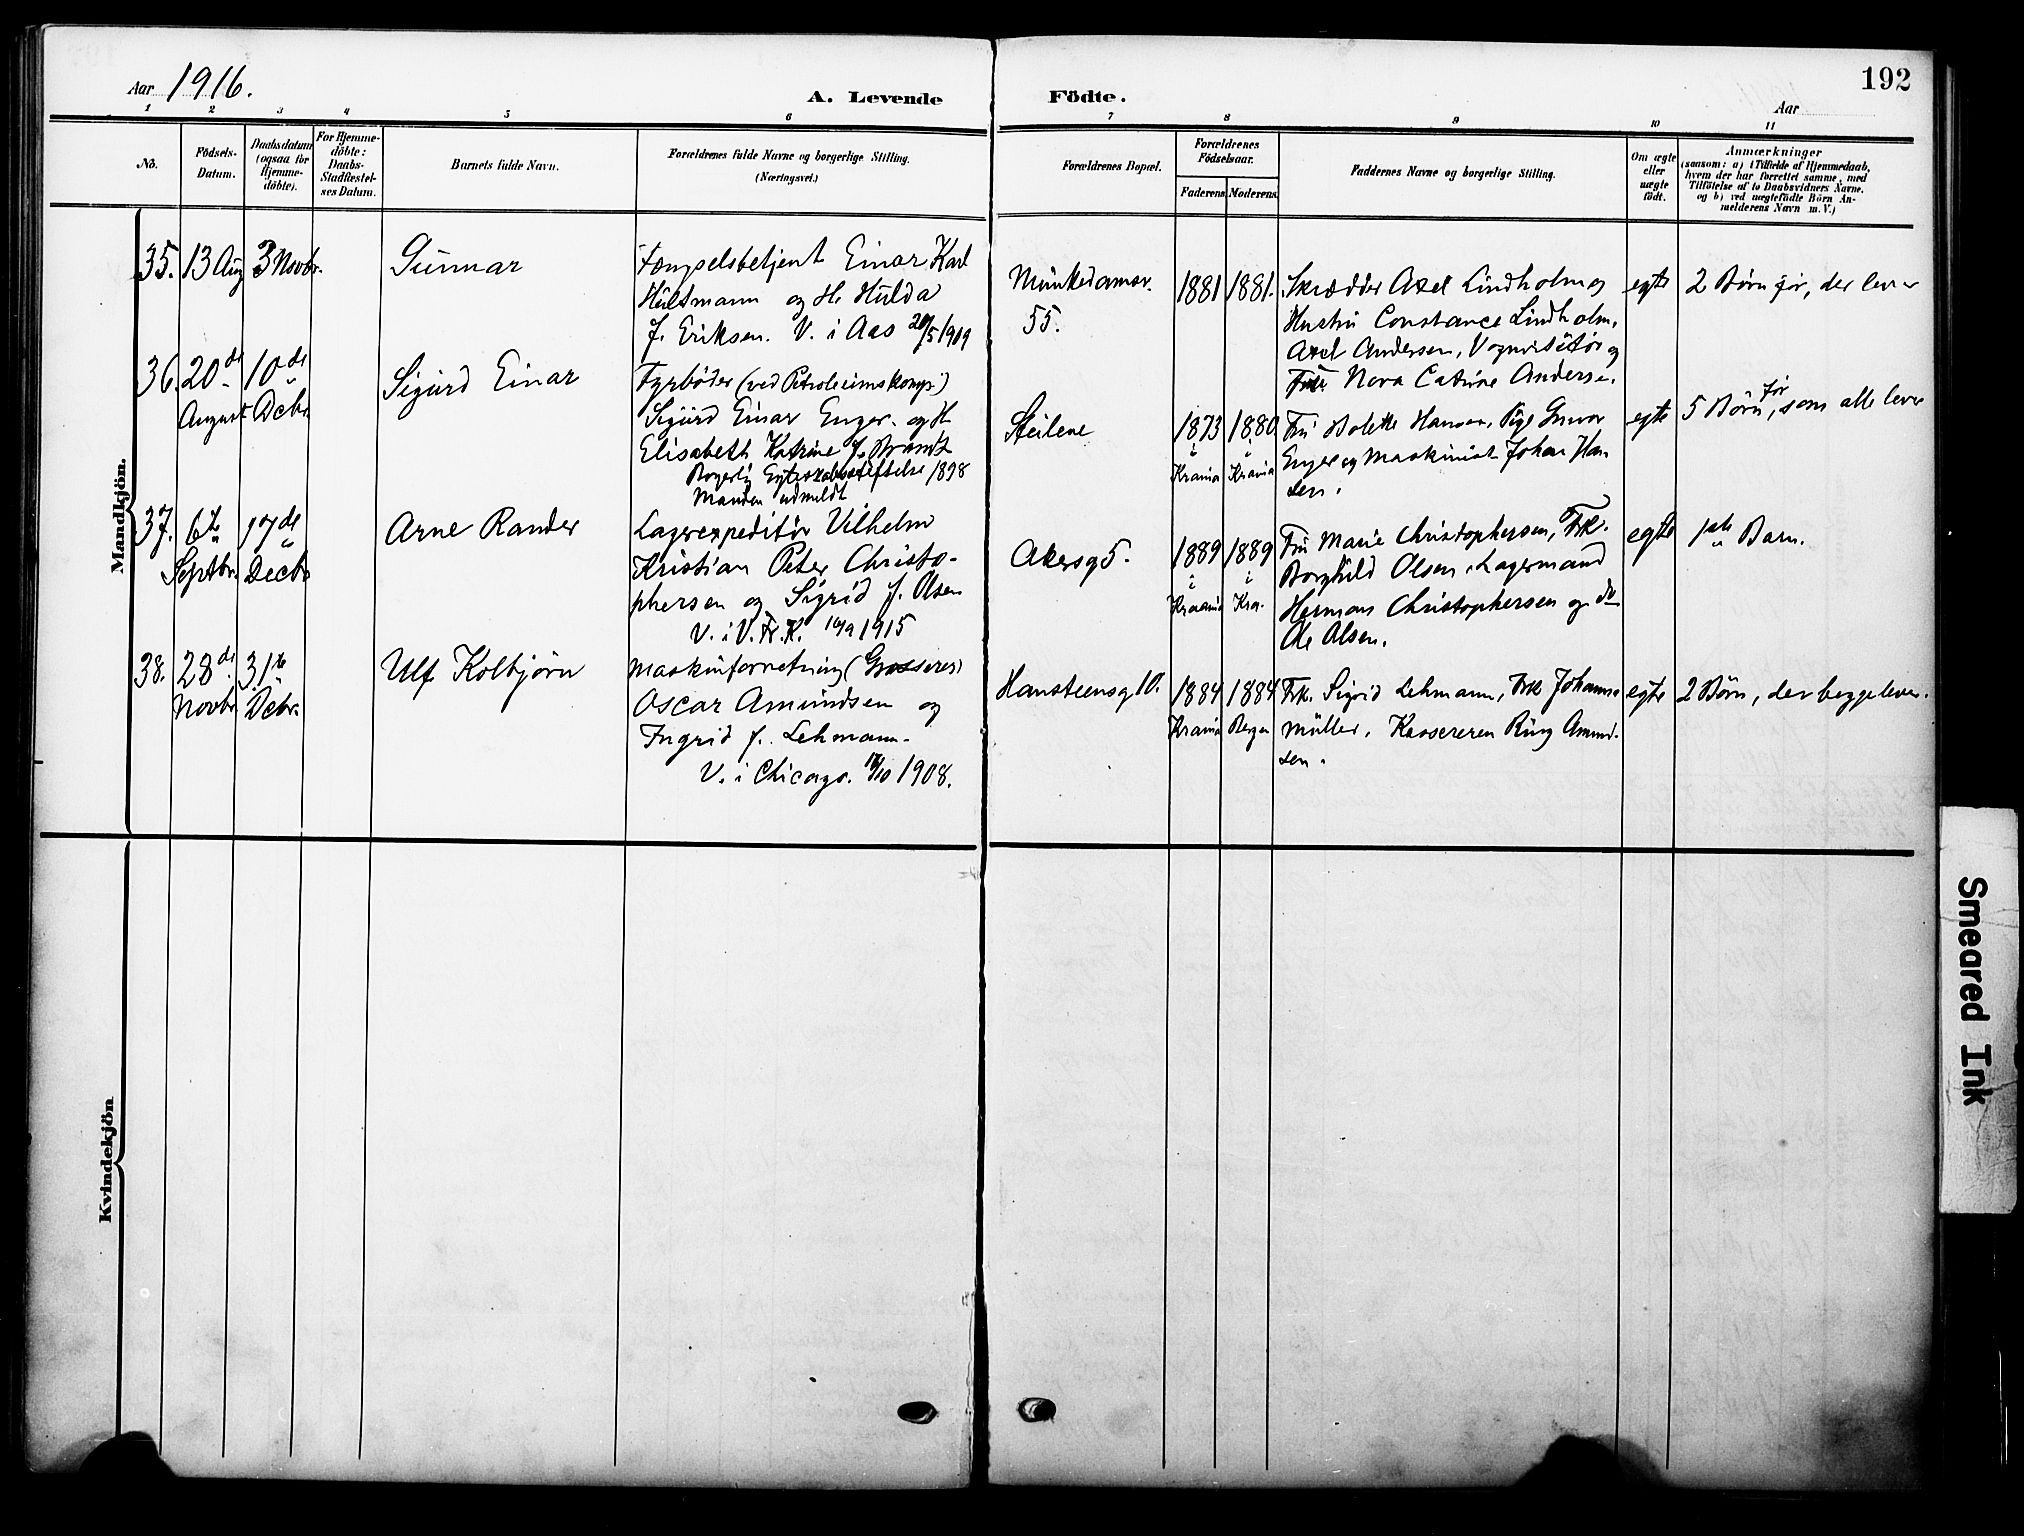 Aar 1916.
A. Levende Födte.
192
Aar
1 2 3 4 5 6 7 8 9 10 11
No.
Födsels-
Datum.
Daabsdatum
(ogsaa for
Hjemme-
döbte).
For Hjemme-
döbte:
Daabs-
Stadfæstel-
ses Datum.
Barnets fulde Navn.
Forældrenes fulde Navne og borgerlige Stilling.
(Næringsvei.)
Forældrenes Bopæl.
Forældrenes
Födselsaar.
Faderens Moderens
Faddernes Navne og borgerlige Stilling.
Om ægte
eller
uægte
födt.
Anmærkninger
(saasom: a) i Tilfælde af Hjemmedaab,
hvem der har forrettet samme, med
Tilföielse af to Daabsvidners Navne.
og b) ved uægtefödte Börn An-
melderens Navn m. V.)
Mandkjön.
35. 13 Aug 3 Novbr. Gunnar
Fængselsbetjent Einar Karl
Hultmann og H. Hulda
f. Eriksen. V. i Aas 20/5 1909
Munkedamsv.
55.
1881 1881.
Skrædder Axel Lindholm og
Hustru Constance Lindholm,
Axel Andersen, Vognvisitør og
Fru Nora Catrine Andersen.
egte
2 Børn før, der lever
36. 20de August 10de Decbr. Sigurd Einar
Fyrbøder (ved Petroleumskomp.)
Sigurd Einar Enger og H
Elisabeth Katrine f. Brandt
Borgerlig Egteskabsstiftelse 1898
Manden udmeldt
Steilene
1873 i Krania
1880 i Krania
Fru Bolette Hansen, Pige Gunvor
Enger og Maskinist Johan Han
sen.
egte
5 Børn før, som alle lever
37. 6te Septbr. 17de Decbr Arne Rander
Lagerexpeditør Vilhelm
Kristian Peter Christo-
phersen og Sigrid f. Olsen
V. i V. Fr. K. 1915
Akersg 5.
1889 i Kraania
1889 i Kra.
Fru Marie Christophersen, Frk.
Borghild Olsen, Lagermand
Herman Christophersen og do
Ole Olsen.
egte
1ste Barn.
38. 28de Novbr 31te Debr. Ulf Kolbjørn
Maskinforretning (Grosserer)
Oscar Amundsen og
Ingrid f. Lehmann.
V. i Chicago. 1908.
Hansteensg 10.
1884 Krania
1884 Bergen
Frk. Sigrid Lehmann, Frk Johanne
Müller, Kassereren Ring Amund-
sen.
egte
2 Børn, der begge lever.
Kvindekjön
Smeared Ink